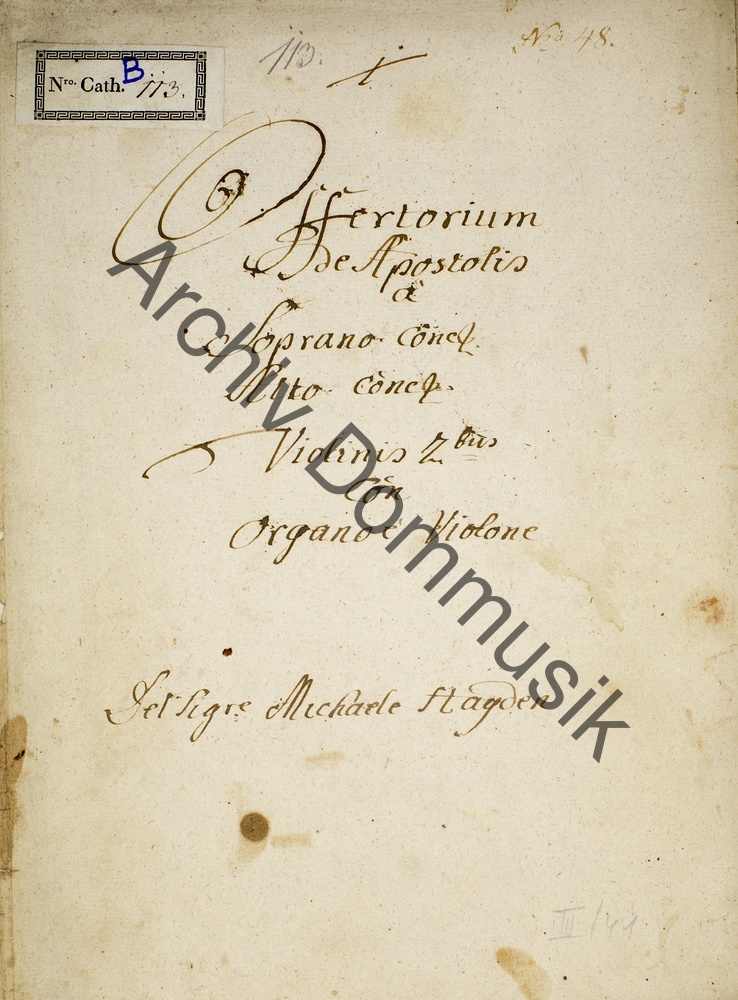 Nro 48.
113.
Nro. Cath. B 113.
Offertorium
de Apostolis
à
Soprano Conc:
Alto Conc:
Violinis 2bus
Con
Organo è Violone
Del Sigre Michaele Hayden
III/41
Archiv Dommusik